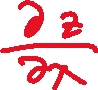 ∂z
∂x